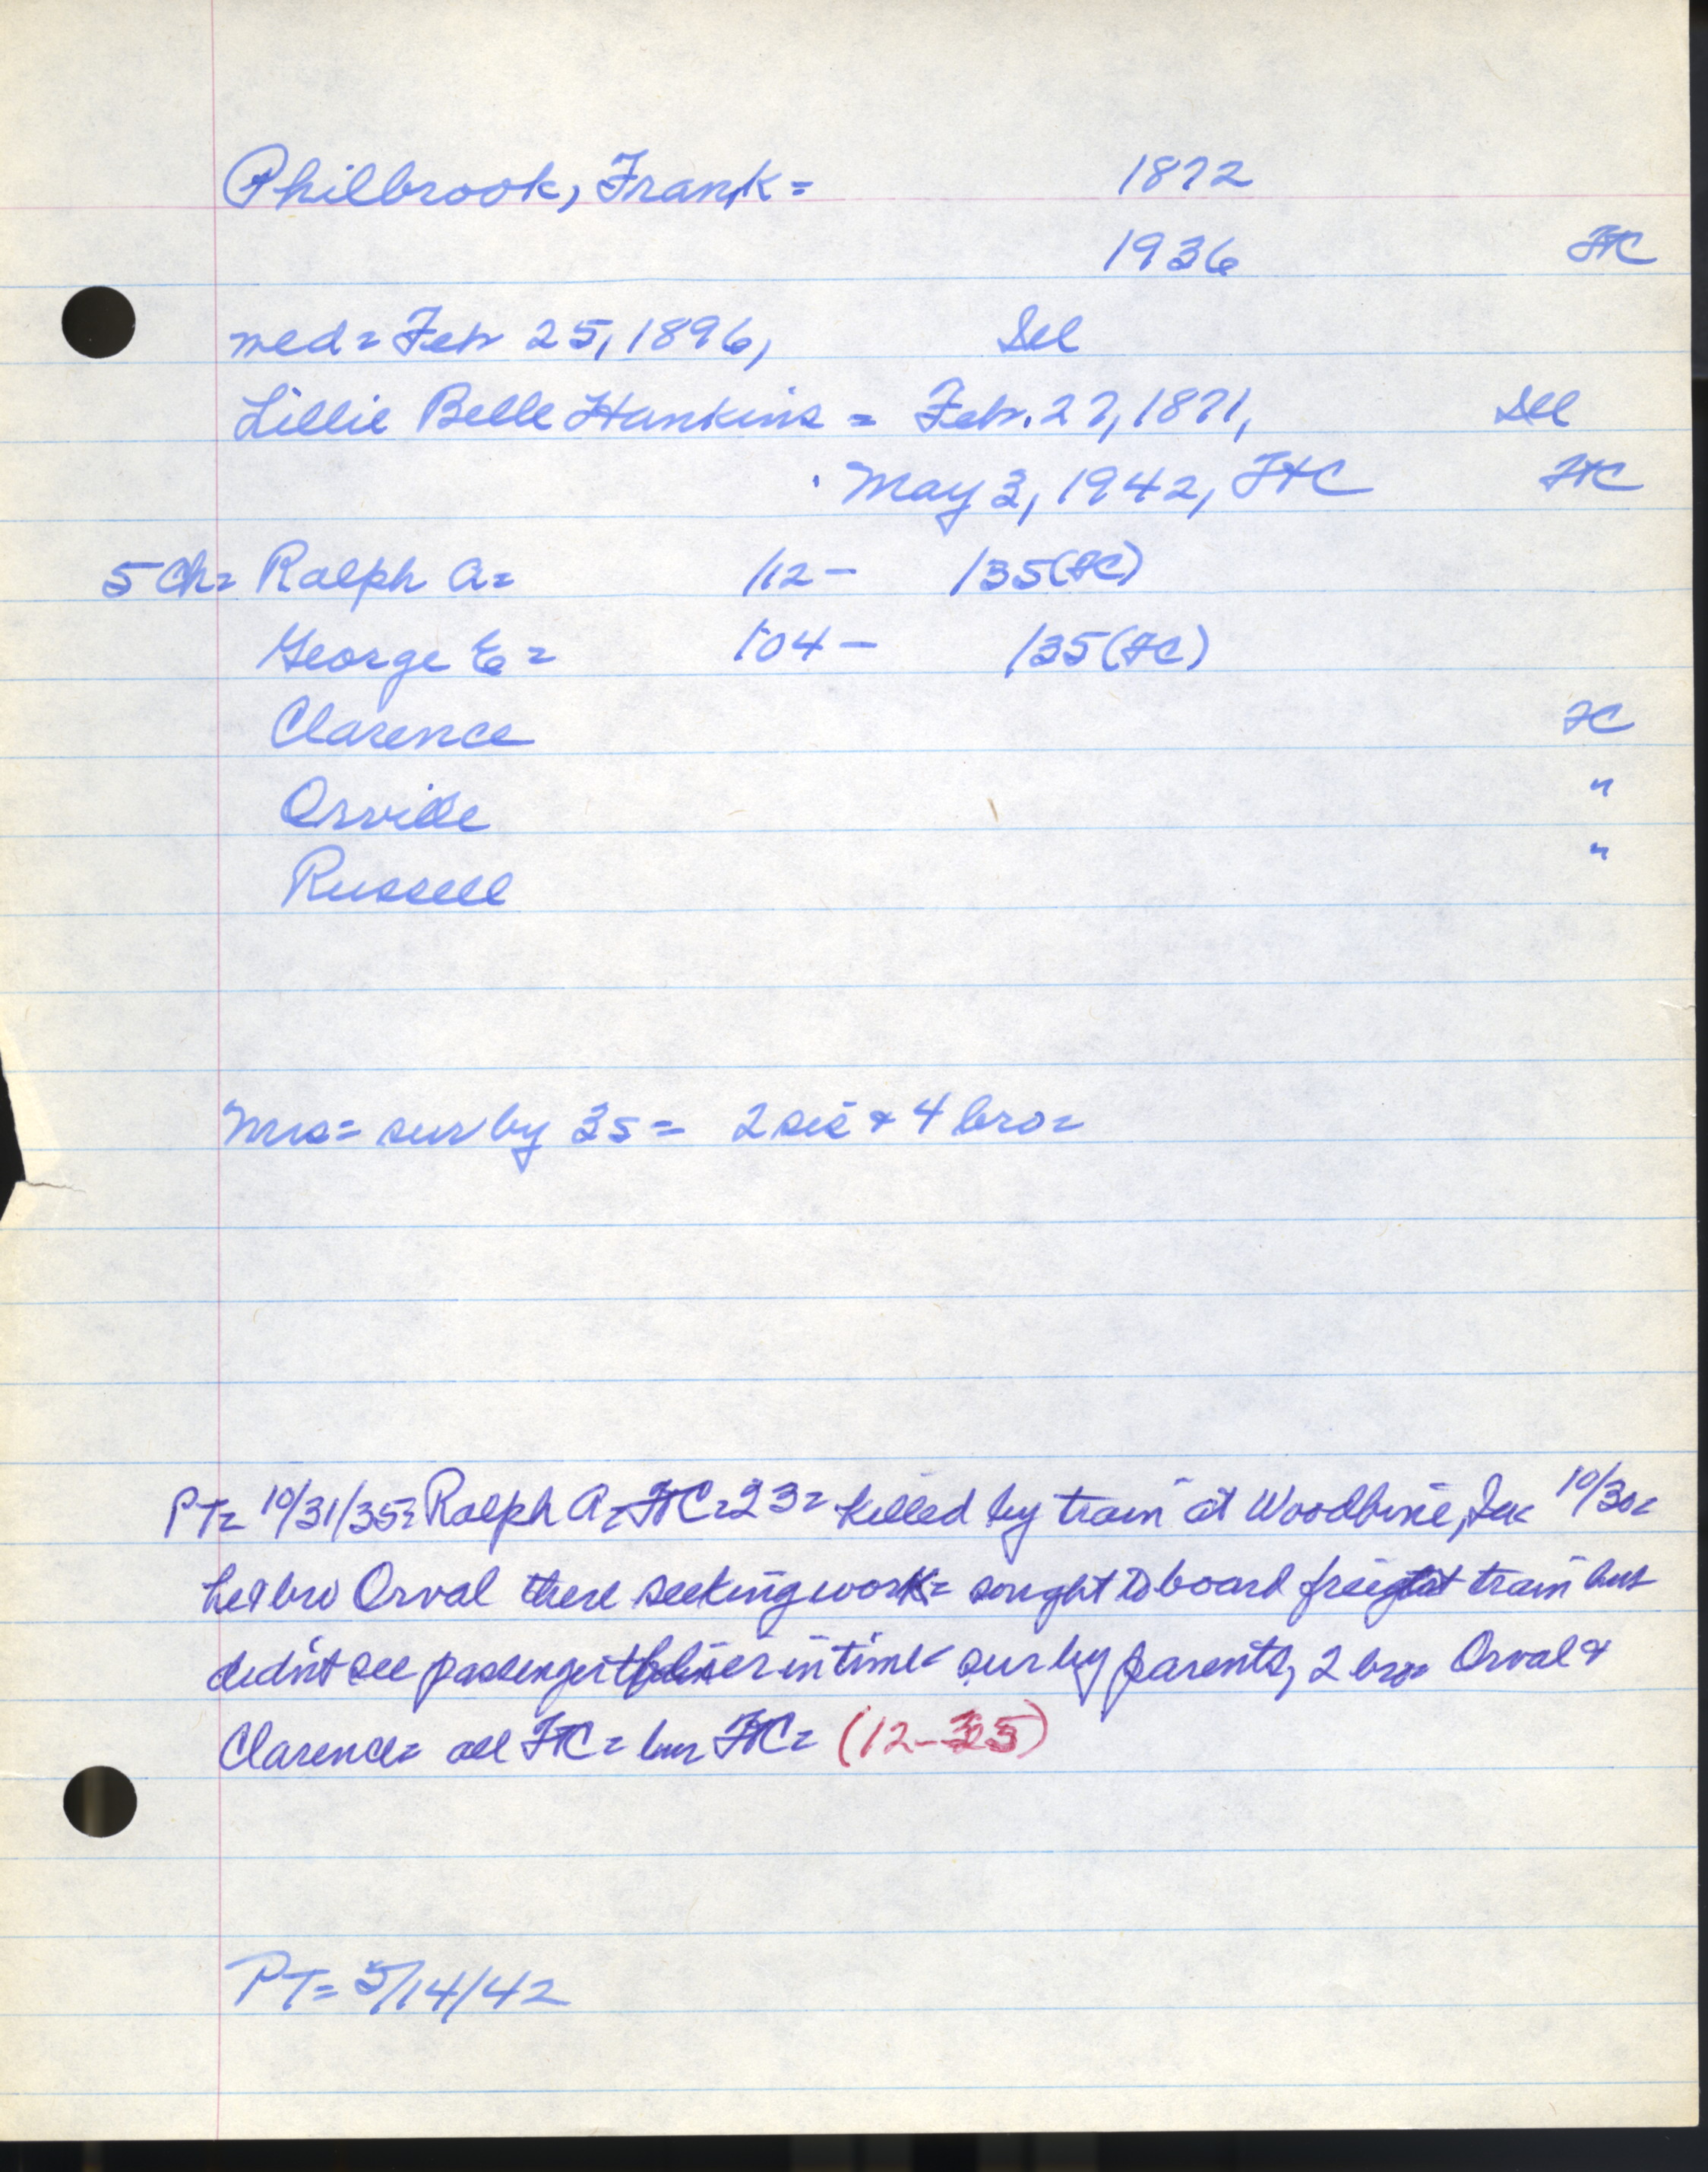 Philbrook, Frank = 1872
1936 FTC
med = Feb 25, 1896, Del
Lillie Belle Hankins = Feb. 27, 1871, Del
May 3, 1942, FTC FTC
5 Ch = Ralph A = /12 - /35 (FC)
George E = '04 - /35 (FC)
Clarence FC
Orville "
Russell "
Mrs = sur by 3s = 2 sis & 4 bro =
PT = 10/31/35 = Ralph A = FTC = 23 = killed by train at Woodbine, 10/30 =
he & bro Orval there seeking work = sought to board freight train but
didn't see passenger in time = sur by parents, 2 bro = Orval &
Clarence = all FTC = bur FTC = (12-35)
PT = 5/14/42